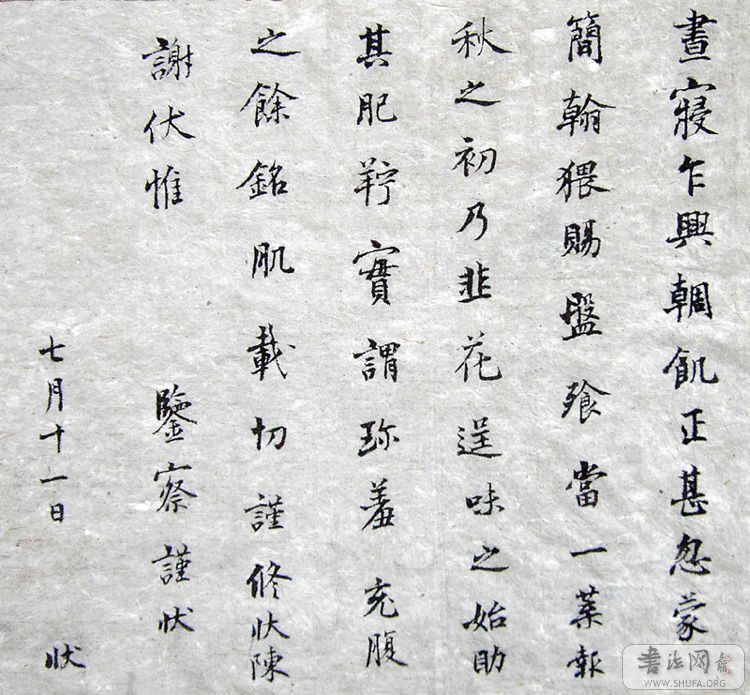 晝寢乍興輖飢正甚忽蒙
簡翰猥賜盤飧當一葉報
秋之初乃韭花逞味之始助
其肥羜實謂珍羞充腹
之餘銘肌載切謹修狀陳
謝伏惟
鑒察謹狀
七月十一日 狀
书法网
WWW.SHUFA.ORG